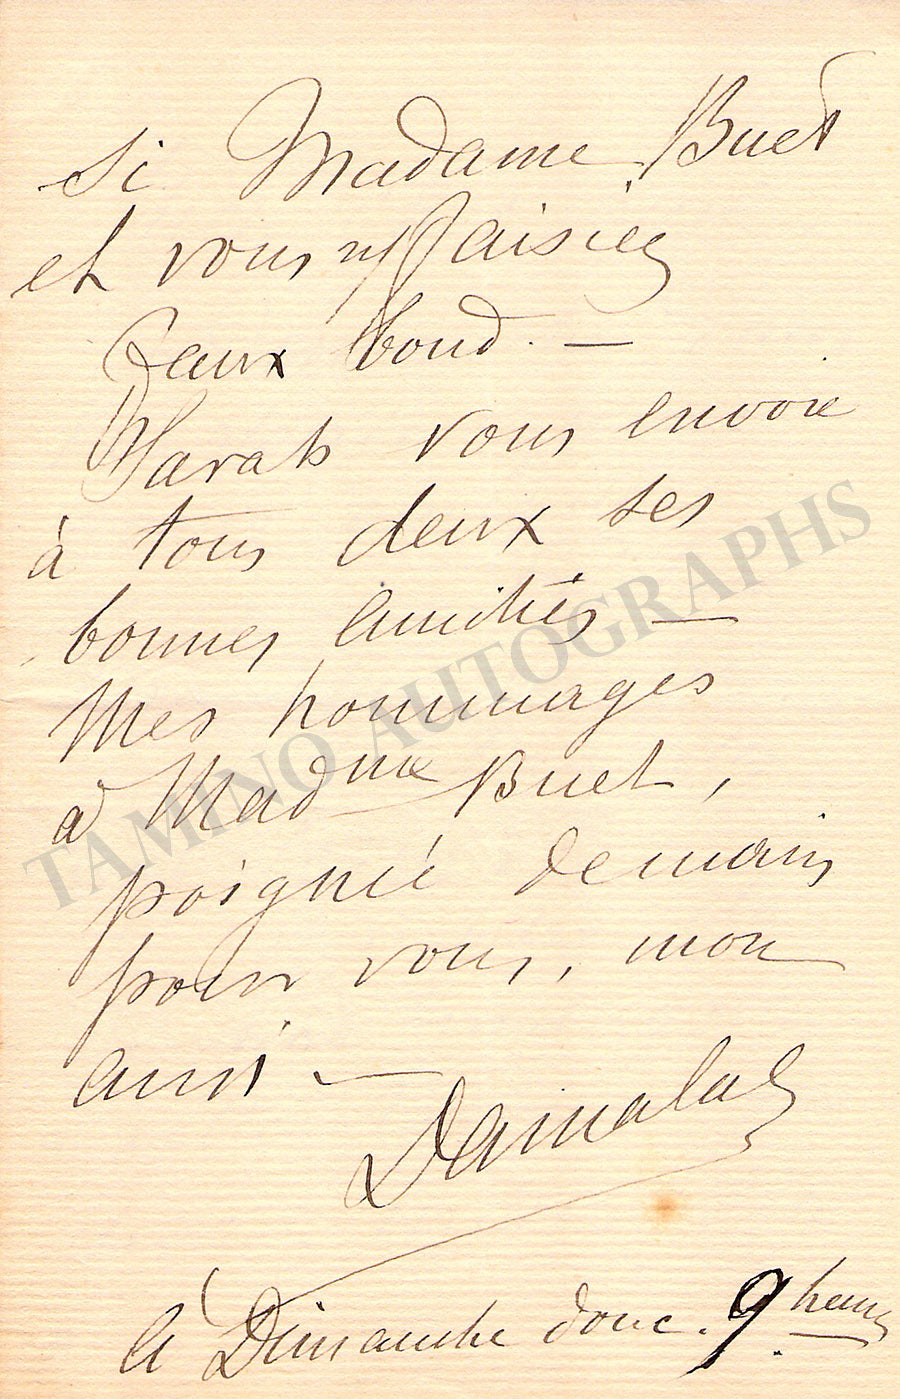 Si Madame Buet
et vous n'y faisiez
faux bond. —
Sarah vous envoie
à tous deux ses
bonnes amitiés —
Mes hommages
à Madme Buet,
poignée de main
pour vous, mon
ami —
Damala
à Dimanche donc. 9 heures
TAMINO AUTOGRAPHS